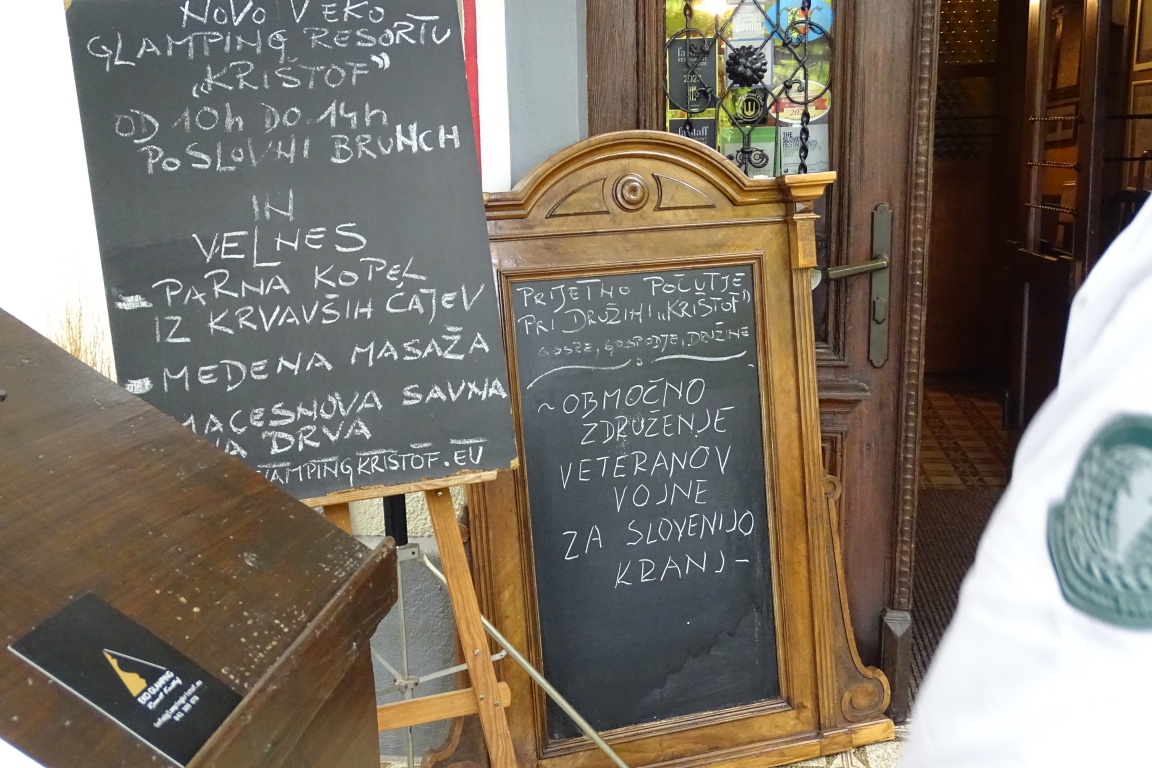 NOVO VEKO
GLAMPING RESORTU
„KRIŠTOF”
OD 10h DO 14h
POSLOVNI BRUNCH
IN
VELNES
- PARNA KOPEL
IZ KRVAVŠIH ČAJEV
- MEDENA MASAŽA
MACESNOVA SAVNA
NA DRVA
AMPINGKRISTOF.EU
PRIJETNO POČUTJE
PRI DRUŽINI „KRIŠTOF”
GOSPE, GOSPODJE, DRUŽINE
~ OBMOČNO
ZDRUŽENJE
VETERANOV
VOJNE
ZA SLOVENIJO
KRANJ -
falstaff
2021
falstaff
THE
EKO GLAMPING
Resort Krištof